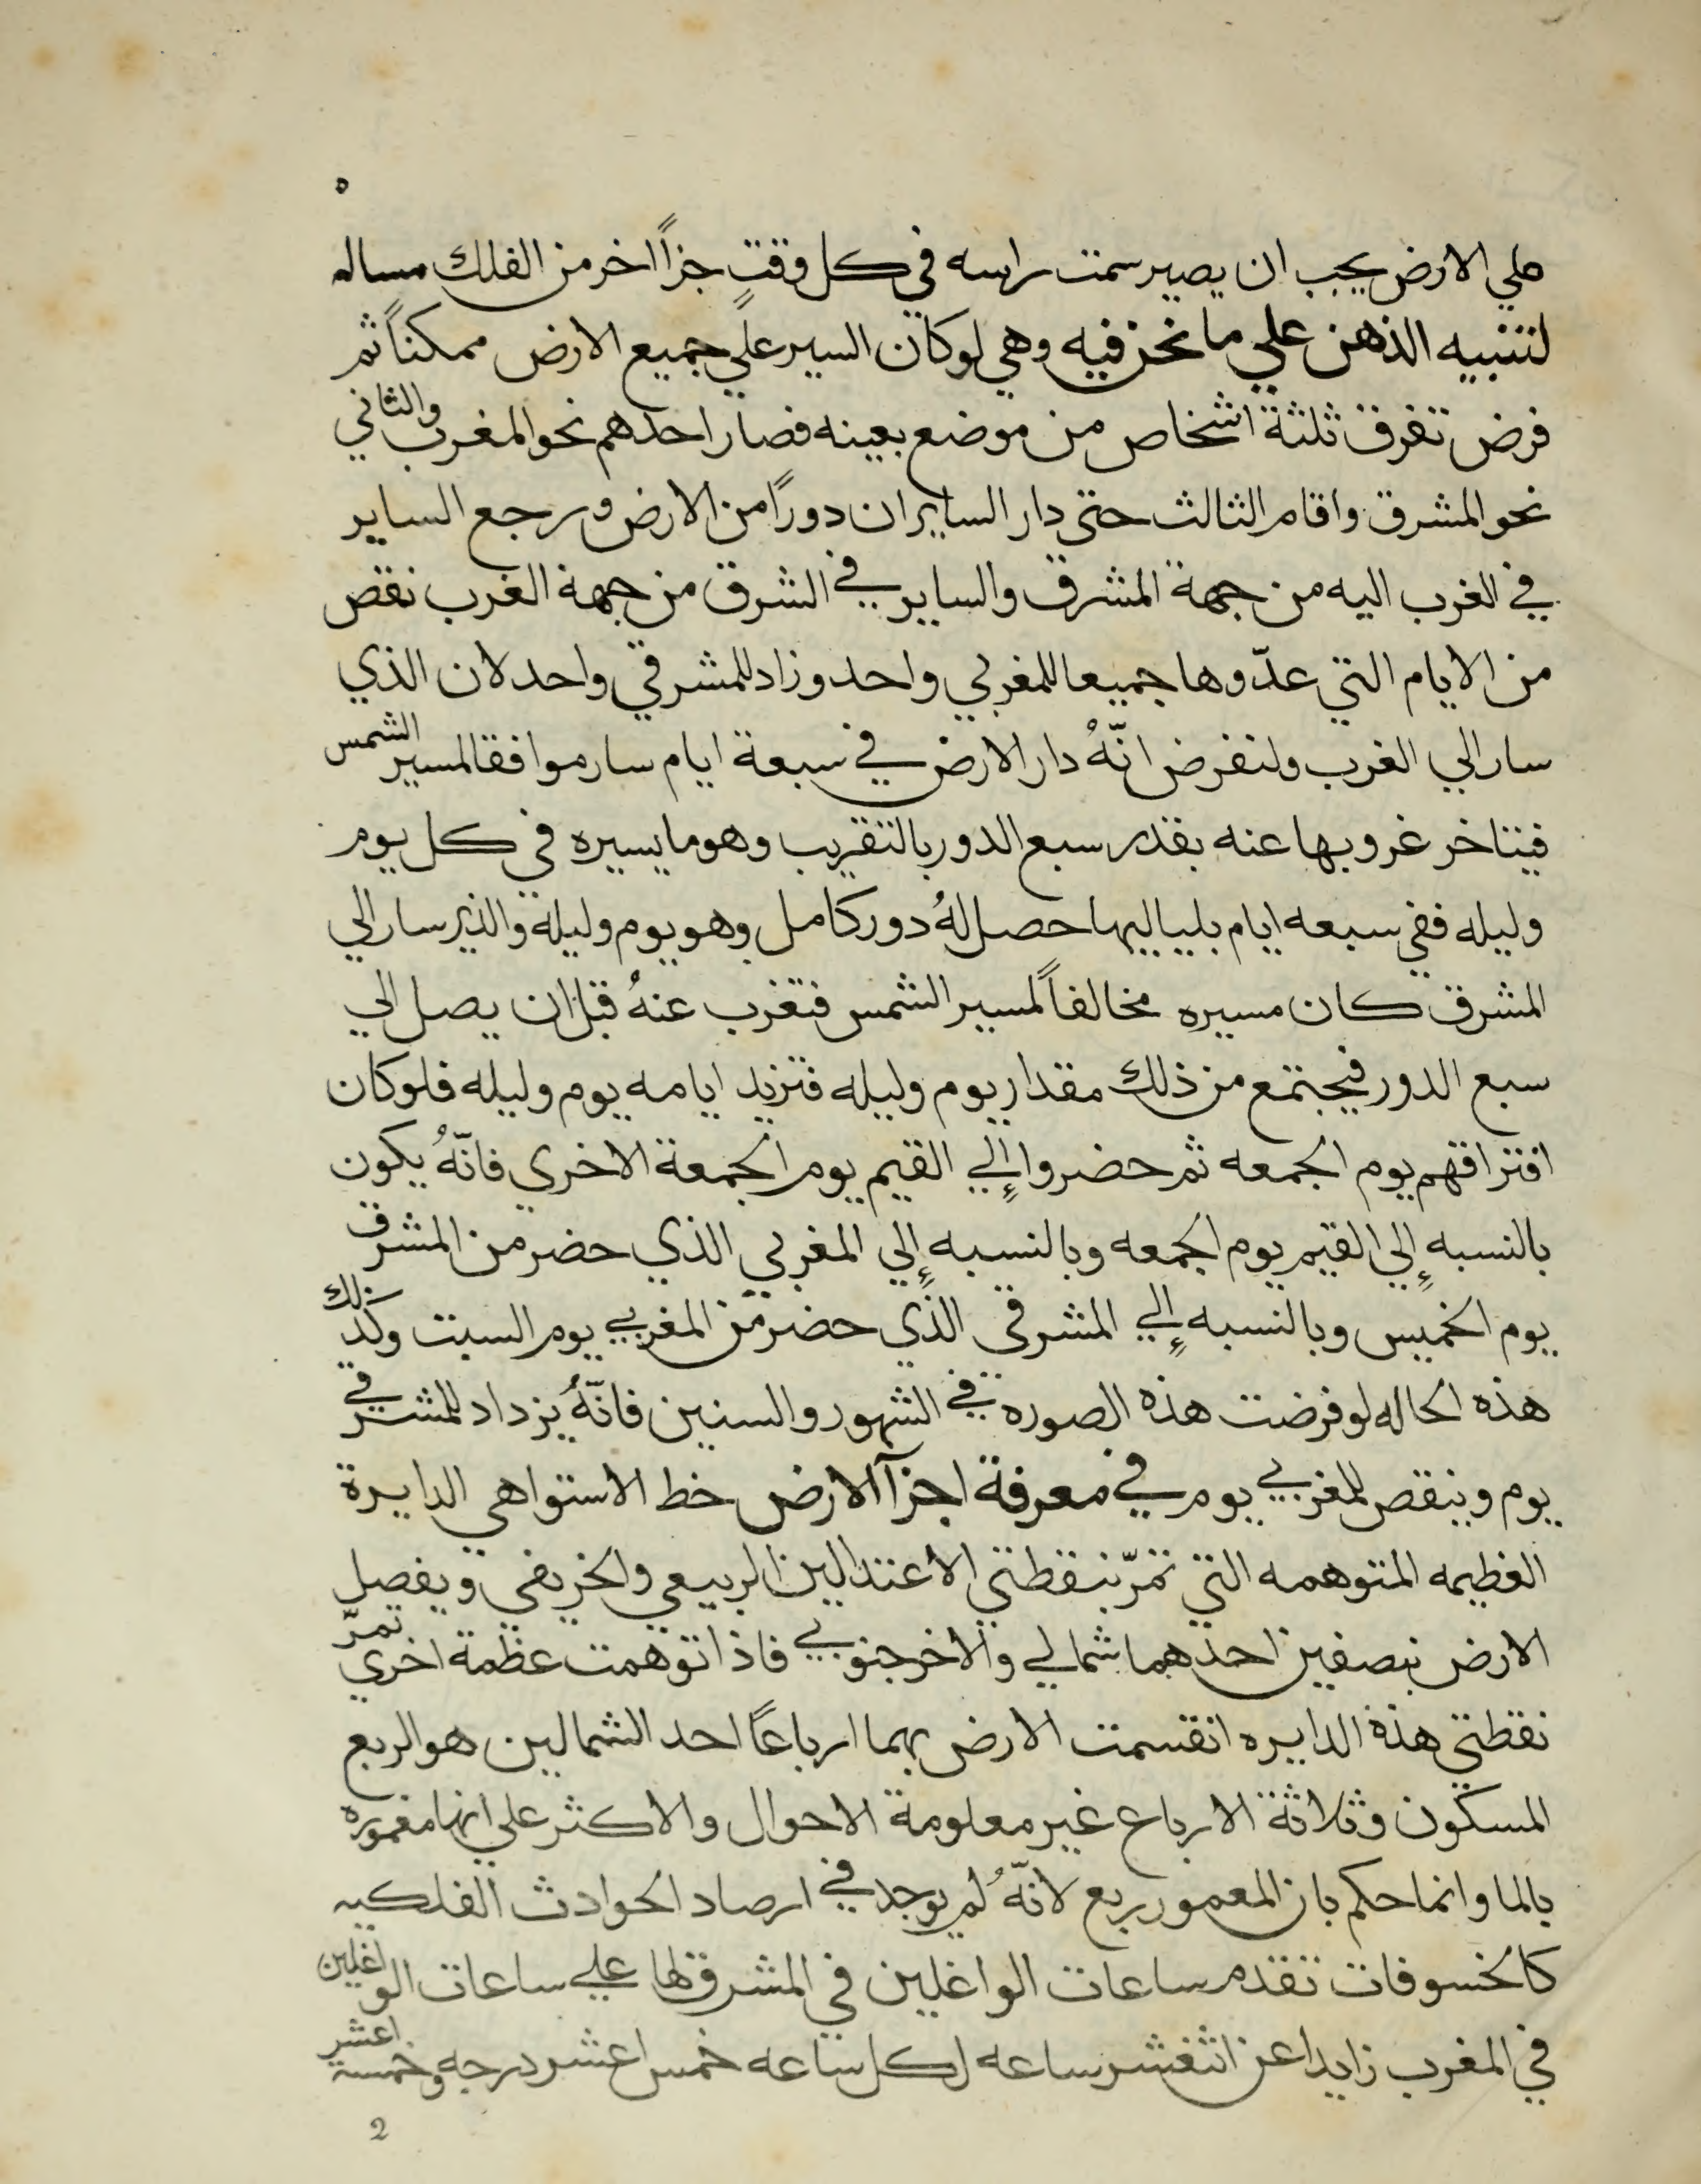 ٥
علي الارض يجب ان يصير سمت راسه في كل وقتٍ جزاً اخر من الفلك مساله
لتنبيه الذهن علي ما نحن فيه وهي لو كان السير علي جميع الارض ممكناً ثم
فرض تفرق ثلثة اشخاص من موضع بعينه فصار احدهم نحو المغرب والثاني
نحو المشرق واقام الثالث حتي دار السايران دورًا من الارض ورجع الساير
في الغرب اليه من جهة المشرق والساير في الشرق من جهة الغرب نقص
من الايام التي عدّوها جميعا للمغربي واحد وزاد للمشرقي واحد لان الذي
سار الي الغرب ولنفرض انّهُ دار الارض في سبعة ايام سار موافقا لمسير الشمس
فيتاخر غروبها عنه بقدر سبع الدور بالتقريب وهو ما يسيره في كل يوم
وليله ففي سبعه ايام بلياليها حصل لهُ دور كامل وهو يوم وليلة والذي سار الي
المشرق كان مسيره مخالفاً لمسير الشمس فتغرب عنهُ قبل ان يصل الي
سبع الدور فيجتمع من ذلك مقدار يوم وليله فتزيد ايامه يوم وليله فلو كان
افتراقهم يوم الجمعه ثم حضروا إلي القيم يوم الجمعة الاخري فانّهُ يكون
بالنسبه إلي القيم يوم الجمعه وبالنسبه إلي المغربي الذي حضر من المشرق
يوم الخميس وبالنسبه إلي المشرقي الذي حضر من المغربي يوم السبت وكذلك
هذه الحاله لو فرضت هذه الصورة في الشهور والسنين فانّهُ يزداد للمشرقي
يوم وينقص للمغربي يوم في معرفة اجزآ الارض خط الاستوا هي الدايرة
العظيمه المتوهمه التي تمرّ بنقطتي الاعتدالين الربيعي والخريفي ويفصل
الارض بنصفين احدهما شمالي والاخر جنوبي فاذا توهمت عظمة اخري تمرّ
نقطتي هذه الدايره انقسمت الارض بهما ارباعًا احد الشمالين هو الربع
المسكون وثلاثة الارباع غير معلومة الاحوال والاكثر علي انها مغموره
بالما وانما حكم بان المعمور ربع لانّهُ لم يوجد في ارصاد الحوادث الفلكيه
كالخسوفات تقدم ساعات الواغلين في المشرق لها علي ساعات الواغلين
في المغرب زايدا عن اثنعشر ساعه لكل ساعه خمس اعشر درجه وخمسة اعشر
2